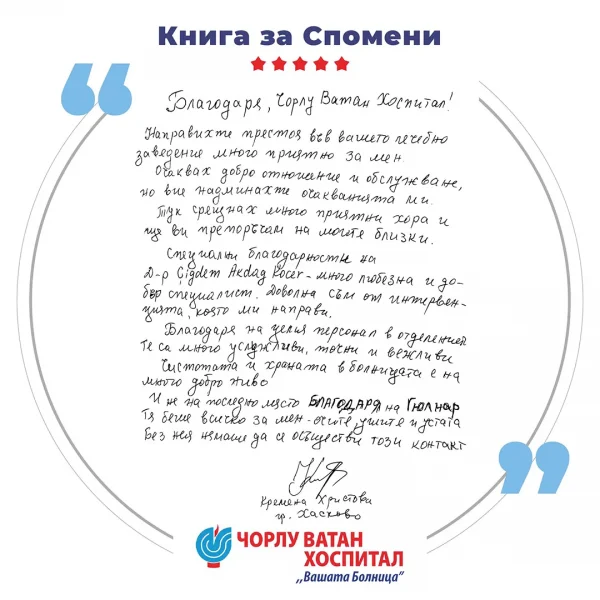 Книга за Спомени
Благодаря, Чорлу Ватан Хоспитал!
Направихте престоя във вашето лечебно
заведение много приятно за мен.
Очаквах добро отношение и обслужване,
но вие надминахте очакванията ми.
Тук срещнах много приятни хора и
ще ви препоръчам на моите близки.
Специални благодарности на
Д-р Çigdem Akdag Kocer - много любезна и до-
бър специалист. Доволна съм от интервен-
цията, която ми направи.
Благодаря на целия персонал в отделението
Те са много услужливи, точни и вежливи
Чистотата и храната в болницата е на
много добро ниво
И не на последно място БЛАГОДАРЯ на ГЮЛНАР
Тя беше всичко за мен - очите, ушите и устата
Без нея нямаше да се осъществи този контакт
Кремена Христова
гр. Хасково
ЧОРЛУ ВАТАН
ХОСПИТАЛ
,,Вашата Болница"